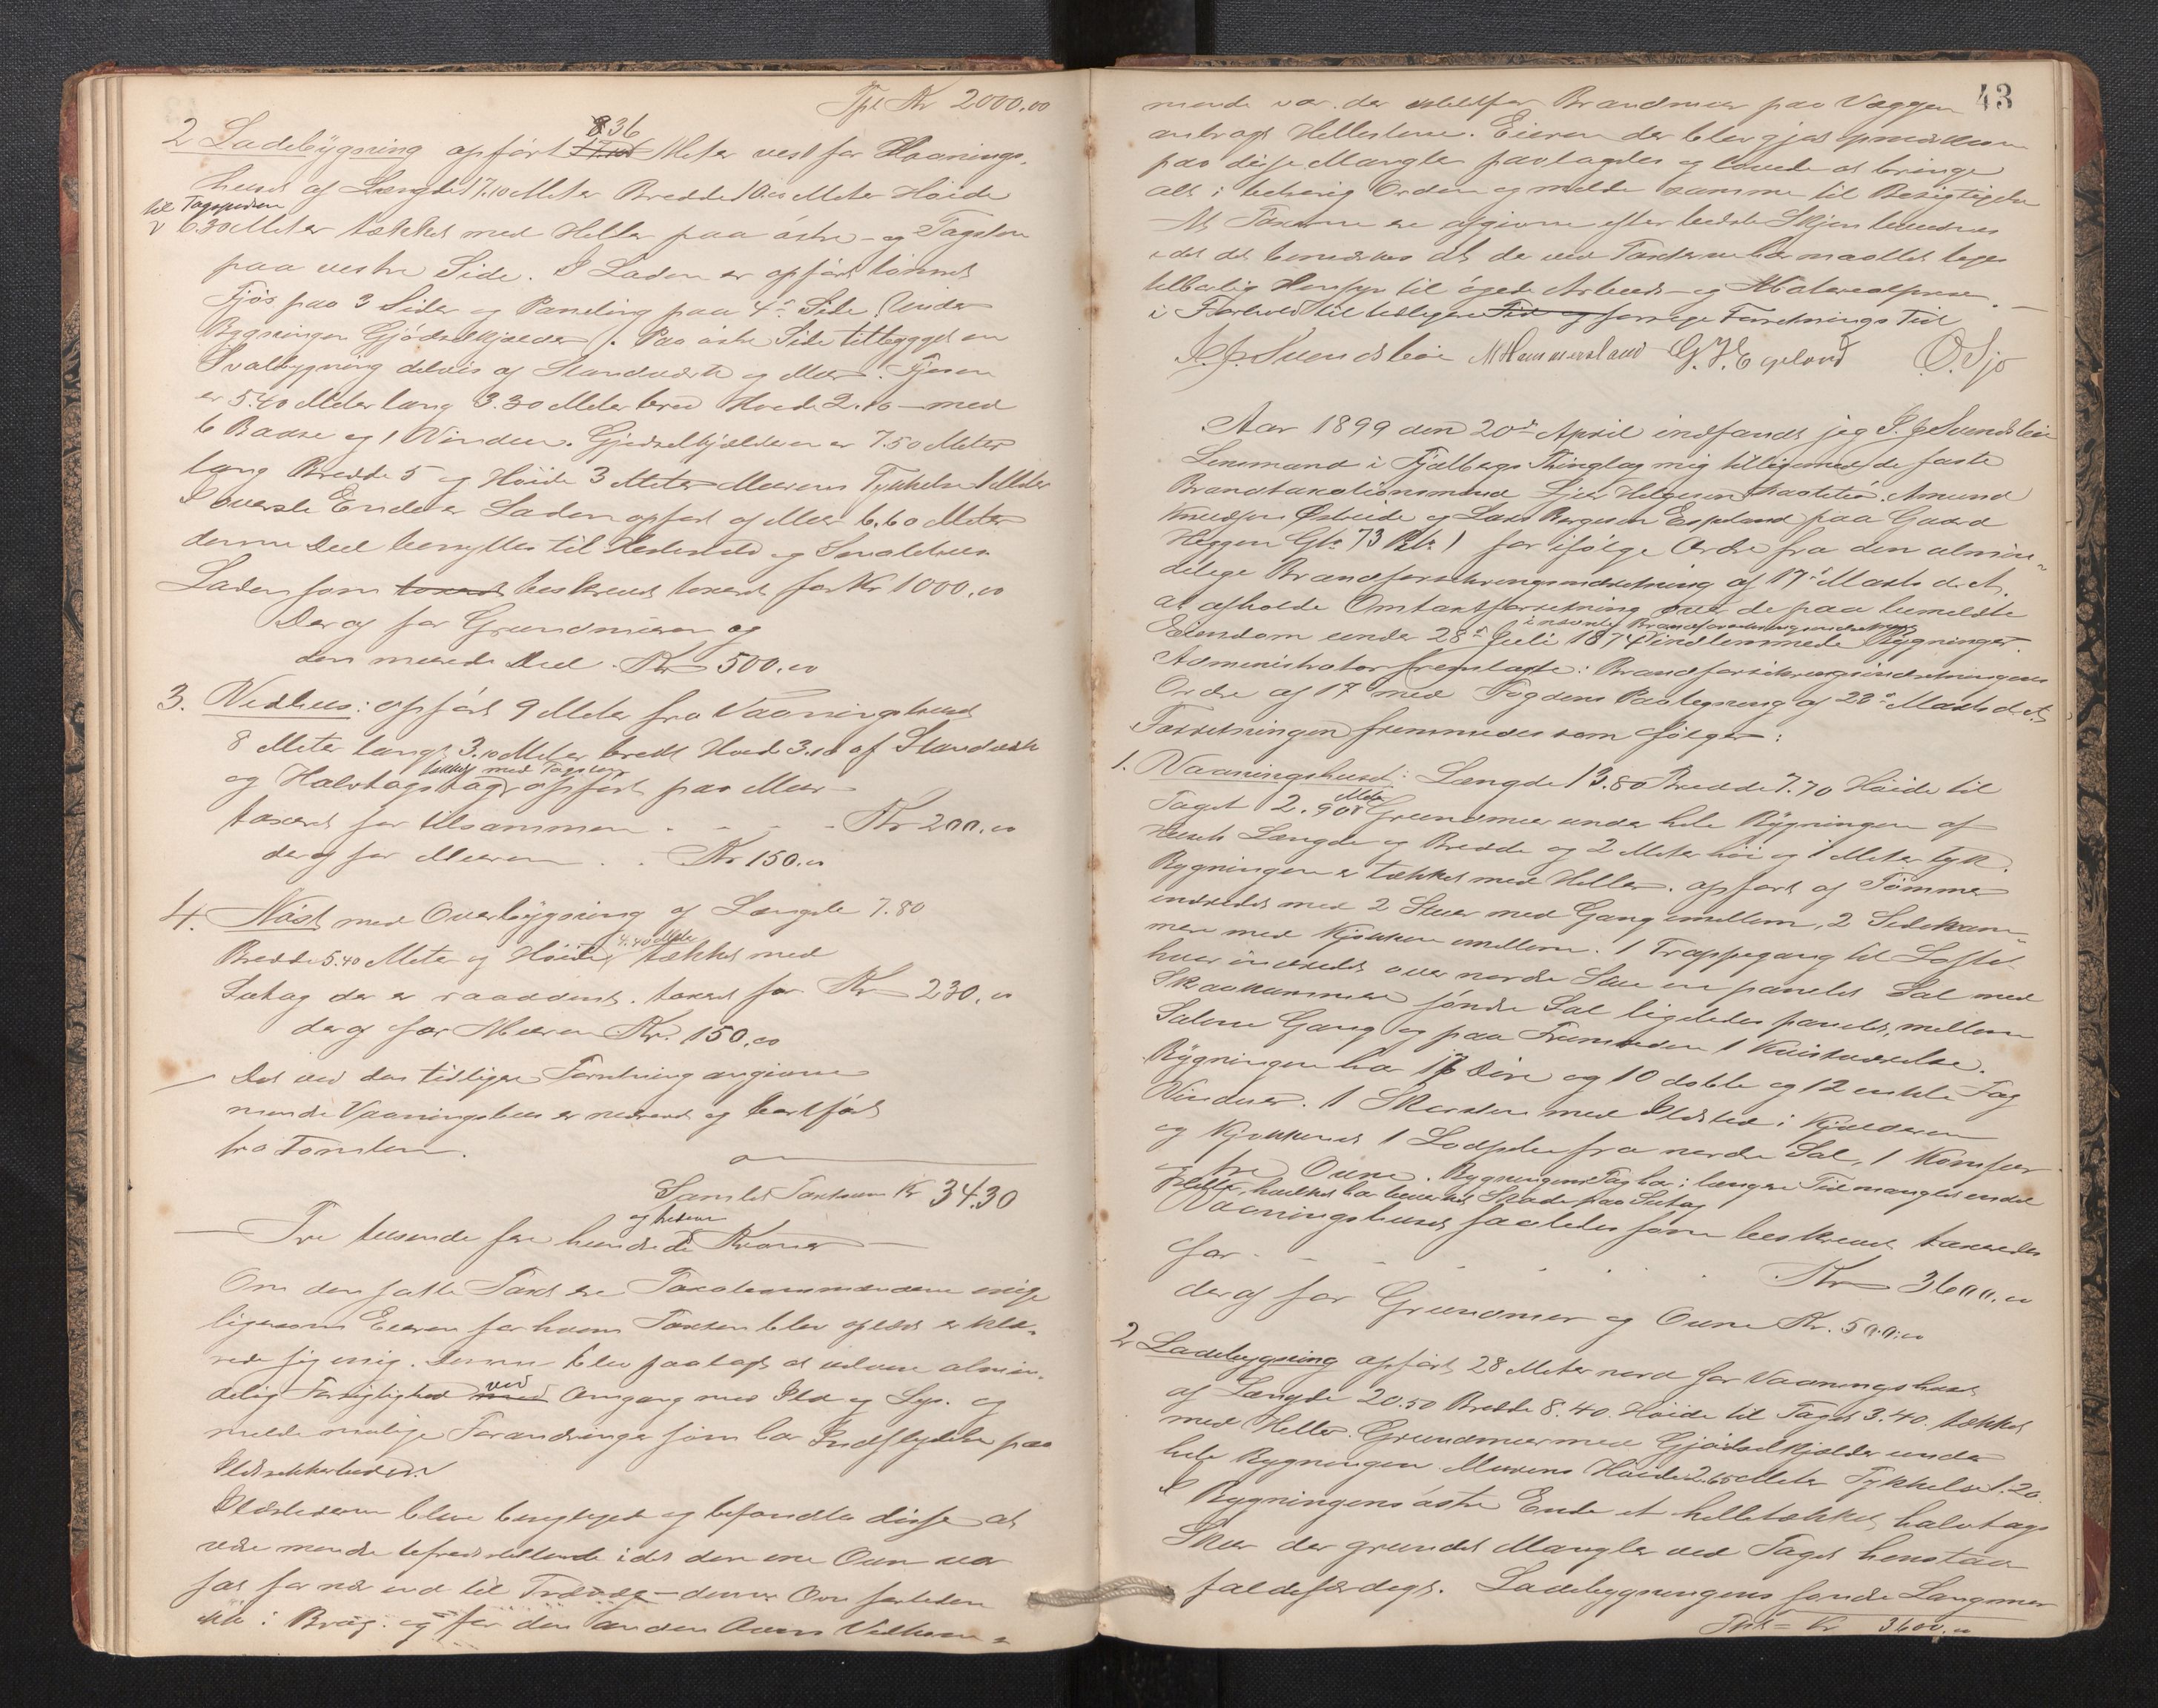 Tpt. Kr 2000.00
2 Ladebygning opført 36 Meter vest for Vaanings-
huset af Længde 17.10 Meter Bredde 10.00 Meter Höide
til Tagspidsen
6.30 Meter tækket med Heller paa østre- og Tagsten
paa vestre Side. I Laden er opført tømret
Fjös paa 3 Sider og Paneling paa 4de Side. Under
Bygningen Gjödselkjælder. Paa østre Side tilbygget en
Svalbygning delvis af Standværk og Muur. Fjøsen
er 5.40 Meter lang 3.30 Meter bred Høide 2.10 med
6 Baase og 1 Vindue. Gjødselkjælderen er 7.50 Meter
lang Bredde 5 og Höide 3 Meter Murens Tykkelse 1 Meter
I øverste Ende er Laden opført af Muur 6.60 Meter
denne Deel benyttes til Hestestald og
Laden som beskrevet taxeret for Kr 1000.00
Deraf for Grundmuren og
den murede Deel. Kr 500.00
3. Vedhuus: opført 9 Meter fra Vaaningshuset
8 Meter langt, 3.10 Meter bredt Høide 3.10 af Standværk
tækket med Tagsten
og Halvtagstag opført paa Muur
taxeret for tilsammen . - - - Kr 200.00
deraf for Muren . . Kr 150.00
4. Nöst med Overbygning af Længde 7.80
Bredde 5.40 Meter og Höide 4.40 Meter tækket med
Sutag der er raaddent. taxeret for Kr 230.00
deraf for Muren Kr. 150.00
Det ved den tidligere Forretning angivne
søndre Vaaningshus er nedrevet og bortført
fra Tomten.
Samlet Taxtsum Kr 3430
og tredive
Tre tusende fire hundrede Kroner
Om den satte Taxt ere Taxationsmændene enige
ligesom Eieren for hvem Taxten blev oplæst erklæ-
rede sig enig. Denne blev paalagt at udvise almin-
delig Forsigtighed ved Omgang med Ild og Lys. og
melde mulige Forandringer som har Indflydelse paa
Ildsikkerheden.
Ildstederne bleve besigtiget og befandtes disse at
være mindre tilfredsstillende idet den ene Ovn var
sat for nær ind til Trævæg denne Ovn forresten
ikke i Brug. og for den anden Ovns Vedkom-
43
mende var der istedetfor Brandmur paa Væggen
anbragt Hellestene. Eieren der blev gjort opmærksom
paa disse Mangler paatog sig og lovede at bringe
alt i behørig Orden og melde samme til Besigtigelse
At Taxterne ere afgivne efter bedste Skjøn bevidnes
idet det bemærkes at der ved Taxterne har maattet tages
tilbørlig Hensyn til øgede Arbeids- og Materialpriser
i Forhold til tidligere forrige Forretnings Tid
J. J. Svendsbøe M Hammersland G. J. Egeland O. Sjo
Aar 1899 den 20de April indfandt jeg J. J. Svendsbøe
Lensmand i Fjelbergs Thinglag mig tilligemed de faste
Brandtaxationsmænd Sjur Helgesen Amund
Knudsen Østveide og Lars Børgesen Espeland paa Gaard
Heggen Gr. 73 Br. 1 for ifølge Ordre fra den almin-
delige Brandforsikringsindretning af 17de Marts d. A.
at afholde Omtaxtforretning over de paa bemeldte
i nævnte Brandforsikringsindretning
Eiendom under 28de Juli 1874 indlemmede Bygninger.
Administrator fremlagte: Brandforsikringsindretningens
Ordre af 17 med Fogdens Paategning af 22de Marts d. A.
Forretningen fremmedes som følger:
1. Vaaningshuset: Længde 13.80 Bredde 7.70 Höide til
Taget 2.90 Meter Grundmur under hele Bygningen af
Husets Længde og Bredde og 2 Meter høi og 1 Meter tyk.
Bygningen er tækket med Heller. opført af Tømmer
indredet med 2 Stuer med Gang imellem, 2 Sidekam-
mere med Kjøkken imellem. 1 Trappegang til Loftet
hvor indredet over nordre Stue en panelet Sal med
Skraakammere søndre Sal ligeledes panelet, mellem
Salene Gang og paa Fremsiden 1 Kvistværelse.
Bygningen har 16 Døre og 10 doble og 12 enkle Fag
Vinduer. 1 Skorsten med Ildsted i Kjælderen
og Kjøkkenet 1 Lodpibe fra nordre Sal, 1 Komfur
tre Ovne. Bygningens Tag har i længere Tid manglet endel
Heller, hvilket har bevirket Skade paa Sutag
Vaaningshuset saaledes som beskrevet taxeredes
for - - . . . . Kr 3600.00
deraf for Grundmur og Ovne Kr. 500.00
2 Ladebygning opført 28 Meter nord for Vaaningshuset
af Længde 20.50 Bredde 8.40. Höide til Taget 3.40. tækket
med Heller. Grundmur med Gjødselkjælder under
hele Bygningen Murens Höide 2.65 Meter Tykkelse 1.20.
I Bygningens østre Ende et helletækket, halvtags
Skur der grundet Mangler ved Taget henstaar
faldefærdigt. Ladebygningens søndre Langmur
Tpt = Kr 3600.00